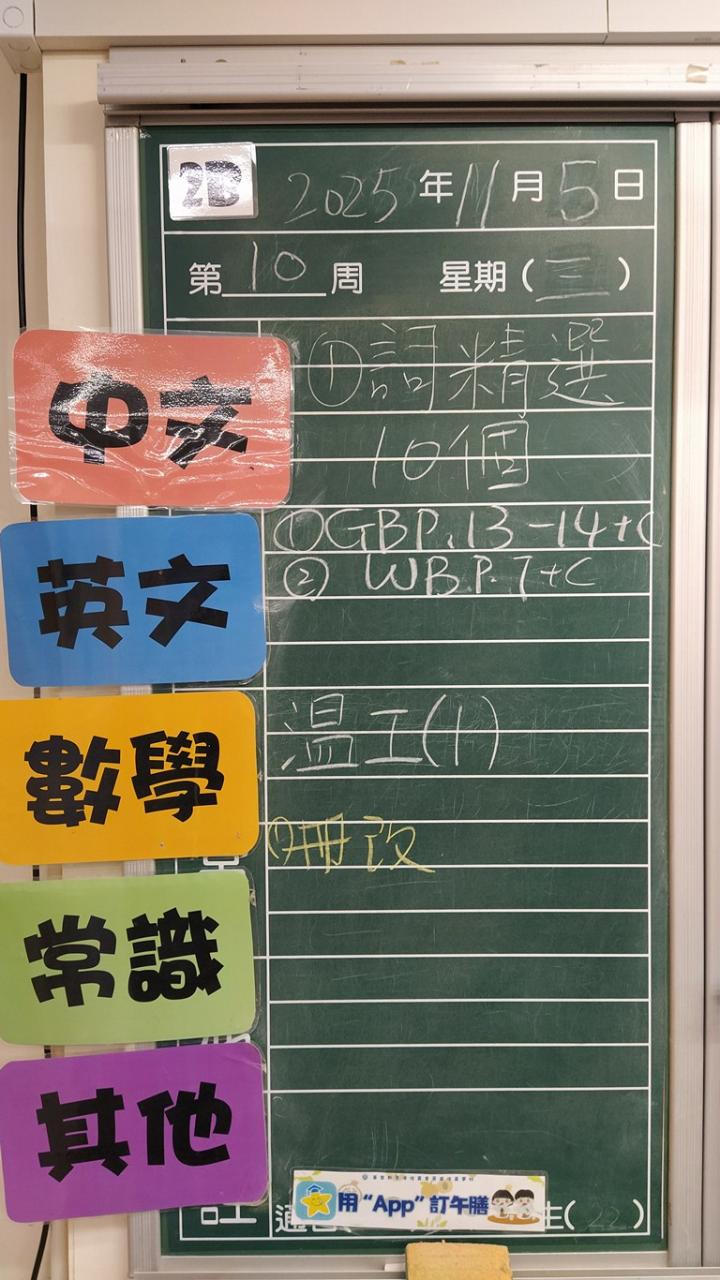 2B 2025年11月5日
第10周 星期(三)
中文 ①詞精選
10個
英文 ①GBP.13-14+C
② WBP.7+C
數學 温工(1)
①冊改
常識
其他
用“App”訂午膳
生(22)